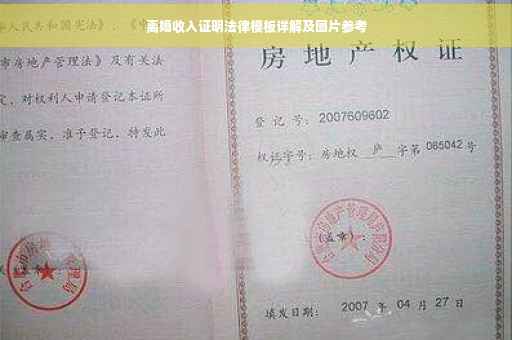 离婚收入证明法律模板详解及图片参考
人民共和国宪法》、《中
市房地产管理法》及有关法
定，对权利人申请登记本证所
审查属实，准予登记，特发此
房地产权证
登记号：2007609602
权证字号：房地权 庐 字第 085042 号
（盖章）：
填发日期： 2007 年 04 月 27 日